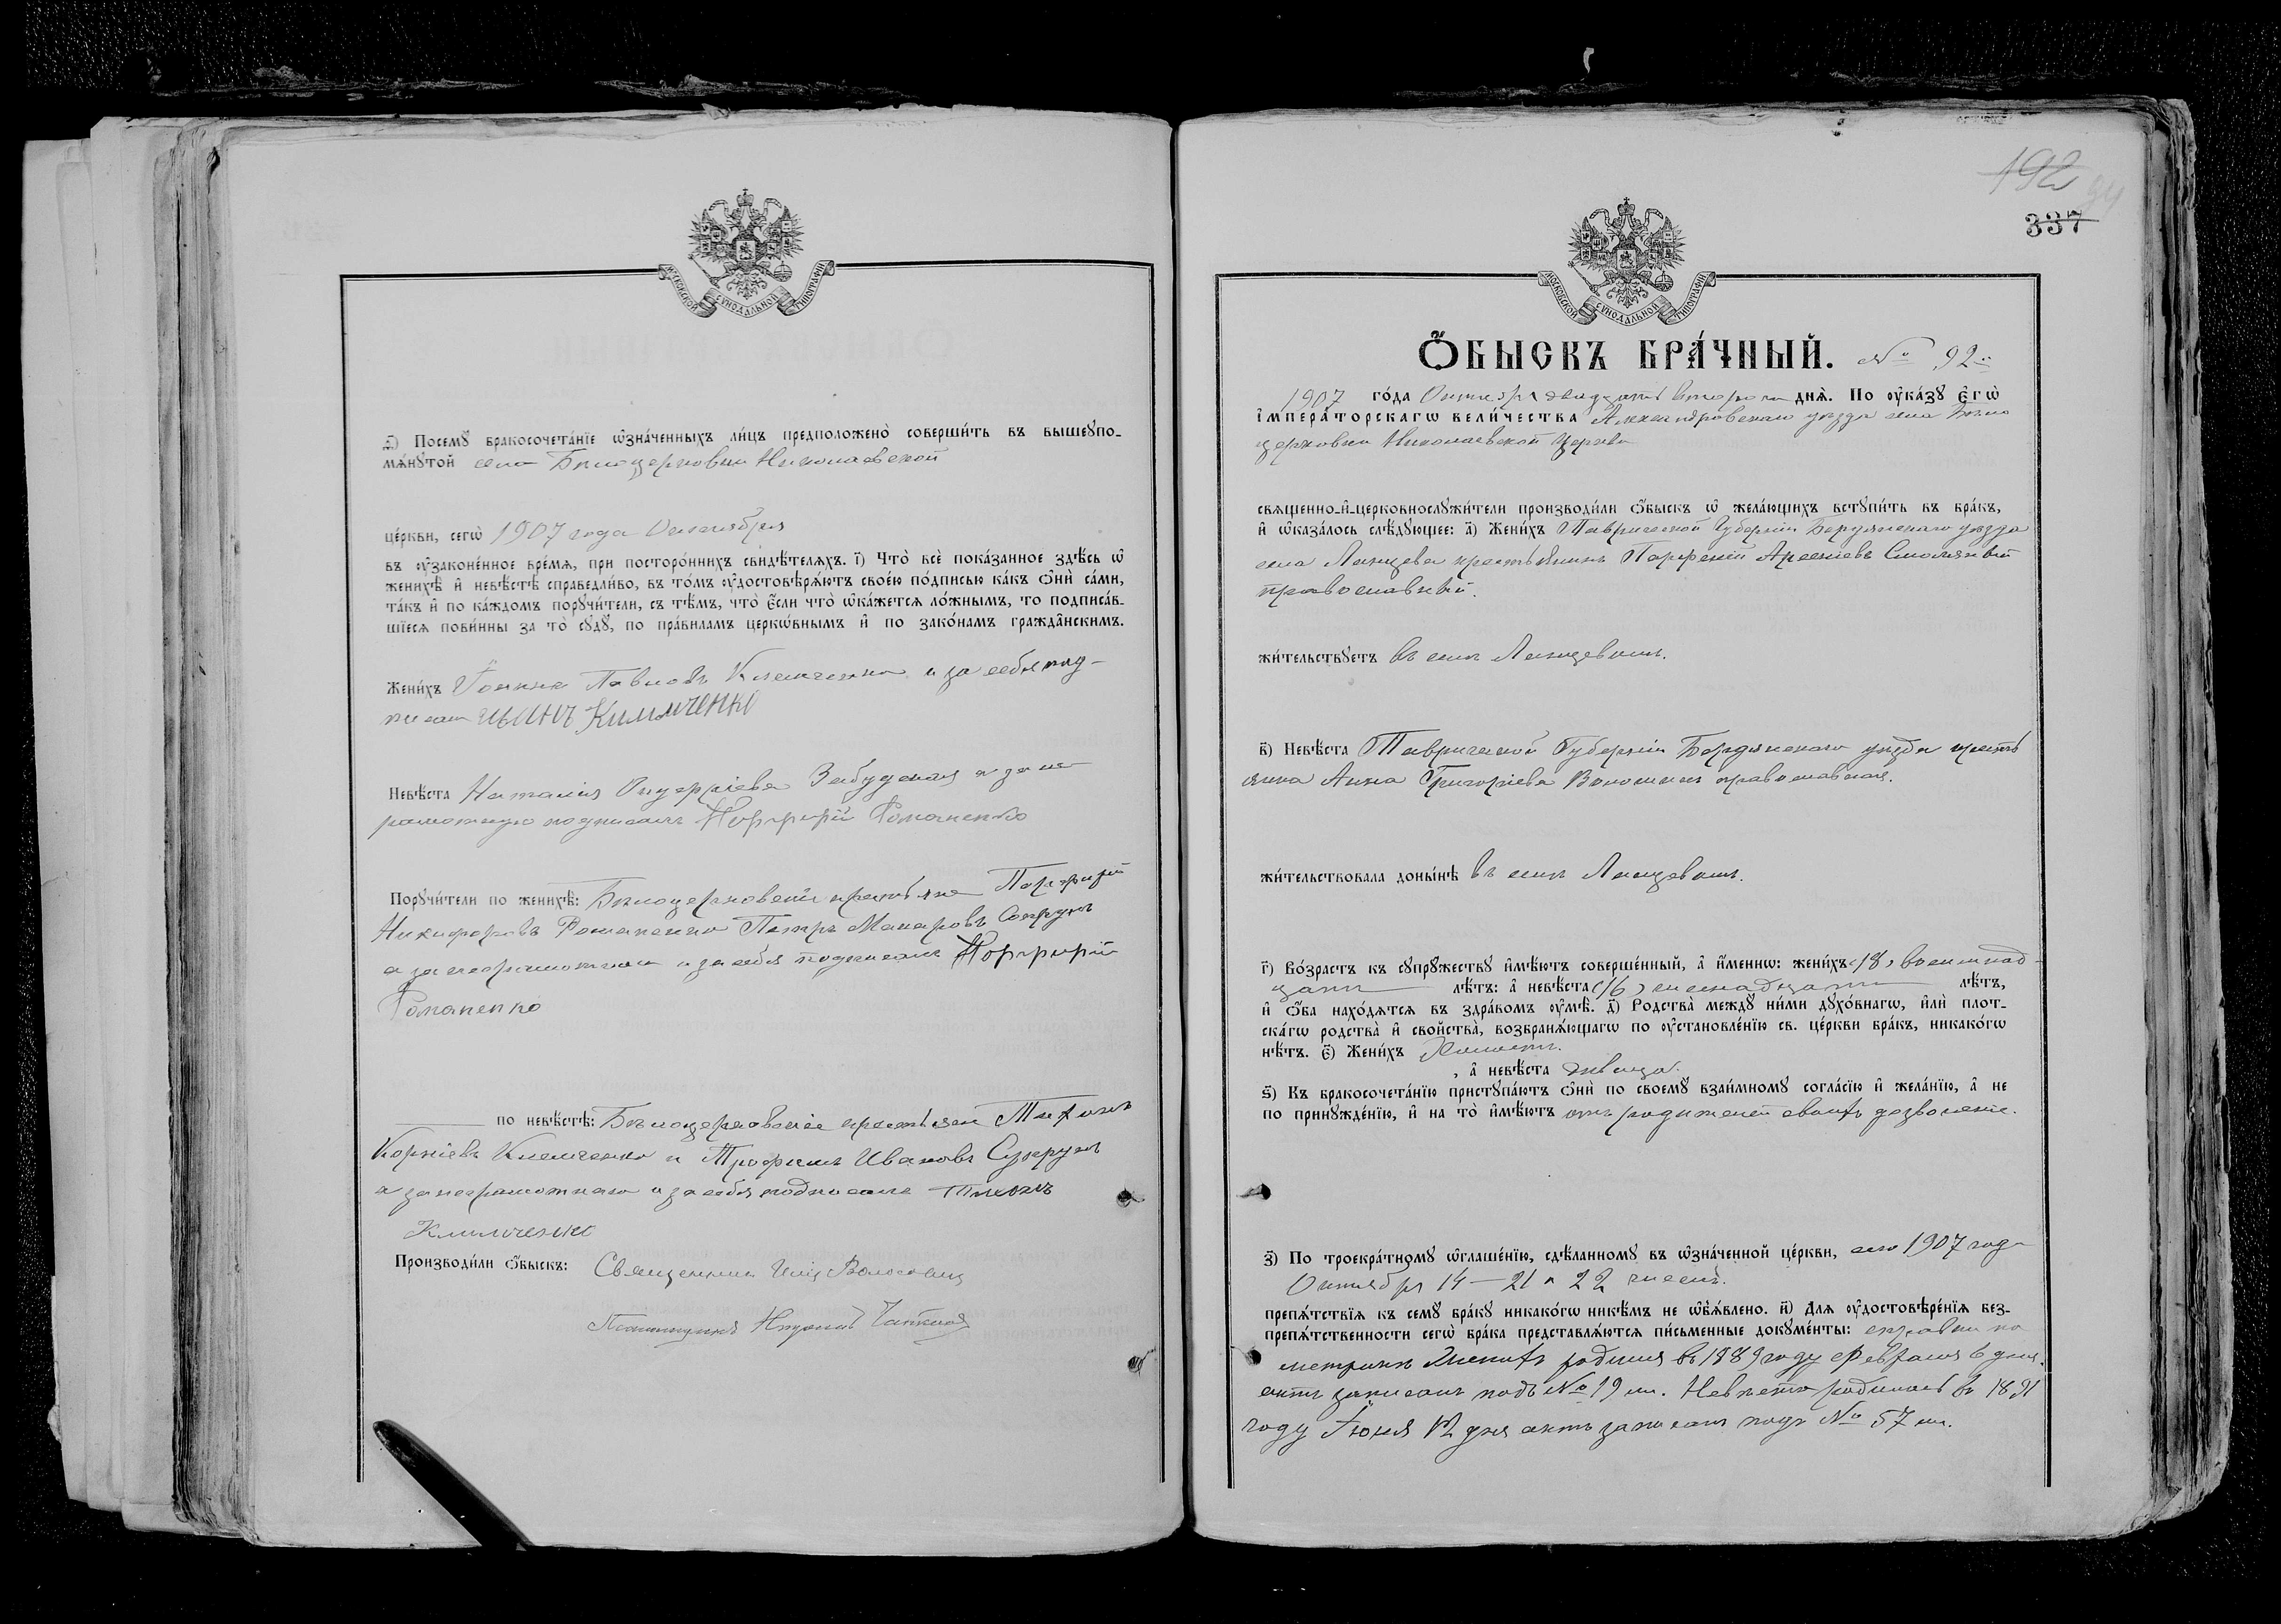 МОСКОВСКОЙ СѴНОДАЛЬНОЙ ТИПОГРАФІИ
ѳ҃) Посемꙋ̀ бракосочета́нїе ѡ҆зна́ченныхъ ли́цъ предположено̀ соверши́ть въ вышеꙋпо-
мѧ́нꙋтой села Бѣлоцерковки Николаевской
це́ркви, сегѡ̀ 1907 года Октября
въ ᲂу҆зако́ненное вре́мѧ, при посторо́ннихъ свидѣ́телѧхъ. і҃) Что̀ всѐ пока́занное здѣ́сь ѡ҆
женихѣ̀ и҆ невѣ́стѣ справедли́во, въ то́мъ ᲂу҆достовѣрѧ́ютъ свое́ю по́дписью ка́къ ѻ҆нѝ са́ми,
та́къ и҆ по ка́ждомъ порꙋчи́тели, съ тѣ́мъ, что̀ є҆́сли что̀ ѡ҆ка́жетсѧ ло́жнымъ, то подписа́в-
шїесѧ пови́нны за то̀ сꙋдꙋ̀, по пра́виламъ церкѡ́внымъ и҆ по зако́намъ гражда̑нскимъ.
Жени́хъ Іоаннъ Павловъ Климченко а за себя под-
писал Иванъ Климченко
Невѣ́ста Наталия Забудская а за не
грамотную подписалъ Порфирій Романенко
Порꙋчи́тели по женихѣ̀: Бѣлоцерковскіе крестьяне Порфирій
Никифоровъ Романенко Петръ Макаровъ
а за неграмотнаго и за себя подписалъ Порфирій
Романенко
по невѣ́стѣ: Бѣлоцерковскіе крестьяне Тихонъ
Корніевъ Климченко и Трофимъ Ивановъ
а за неграмотнаго и за себя подписалъ Тихонъ
Климченко
Производи́ли ѻ҆́быскъ: Священникъ
Псаломщикъ
192
337
МОСКОВСКОЙ СѴНОДАЛЬНОЙ ТИПОГРАФІИ
Ѻ҆́БЫСКЪ БРА́ЧНЫЙ. № 92
1907 го́да Октября двадцать второго днѧ̀. По ᲂу҆ка́зꙋ Є҆гѡ̀
І҆мпера́торскагѡ вели́чества Александровскаго уѣзда села Бѣло
церковки Николаевской Церкви
свѧщенно-и҆-церковнослꙋжи́тели производи́ли ѻ҆́быскъ ѡ҆ жела́ющихъ встꙋпи́ть въ бра́къ,
и҆ ѡ҆каза́лось слѣ́дꙋющее: а҃) Жени́хъ Таврической Губерніи Бердянскаго уѣзда
села Ланцева крестьянинъ Парфеній Арсеніевъ Смоляный
православный.
жи́тельствꙋетъ въ селѣ Ланцевомъ.
в҃) Невѣ́ста Таврической Губерніи Бердянскаго уѣзда кресть
янка Анна Григоріева православная.
жи́тельствовала доны́нѣ въ селѣ Ланцевомъ.
г҃) Во́зрастъ къ сꙋпрꙋ́жествꙋ и҆мѣ́ютъ соверше́нный, а҆ и҆́меннѡ: жени́хъ (18) восемнад-
цати лѣ́тъ: а҆ невѣ́ста (16) шеснадцати лѣ́тъ,
и҆ ѻ҆́ба нахо́дѧтсѧ въ здра́вомъ ᲂу҆мѣ̀. д҃) Родства̀ междꙋ̀ ни́ми дꙋхо́внагѡ, и҆лѝ плот-
ска́гѡ родства̀ и҆ свойства̀, возбранѧ́ющагѡ по ᲂу҆становле́нїю св. це́ркви бра́къ, никако́гѡ
нѣ́тъ. є҃) Жени́хъ Холостъ.
, а҆ невѣ́ста дѣвица.
ѕ҃) Къ бракосочета́нїю пристꙋпа́ютъ ѻ҆нѝ по своемꙋ̀ взаи́мномꙋ согла́сїю и҆ жела́нїю, а҆ не
по принꙋжде́нїю, и҆ на то̀ и҆мѣ́ютъ отъ родителей своихъ дозволеніе.
з҃) По троекра́тномꙋ ѡ҆глаше́нїю, сдѣ́ланномꙋ въ ѡ҆зна́ченной це́ркви, сего 1907 года
Октября 14 — 21 и 22 чиселъ.
препѧ́тствїѧ къ семꙋ̀ бра́кꙋ никако́гѡ никѣ́мъ не ѡ҆б̾ѧ́влено. и҃) Длѧ ᲂу҆достовѣре́нїѧ без-
препѧ́тственности сегѡ̀ бра́ка представлѧ́ютсѧ пи́сьменные докꙋме́нты: справки по
метрикѣ Женихъ родился въ 1889 году Февраля 6 дня.
актъ записанъ подъ № 19 мъ. Невѣста родилась въ 1891
году Іюня 12 дня актъ записанъ подъ № 57 мъ.